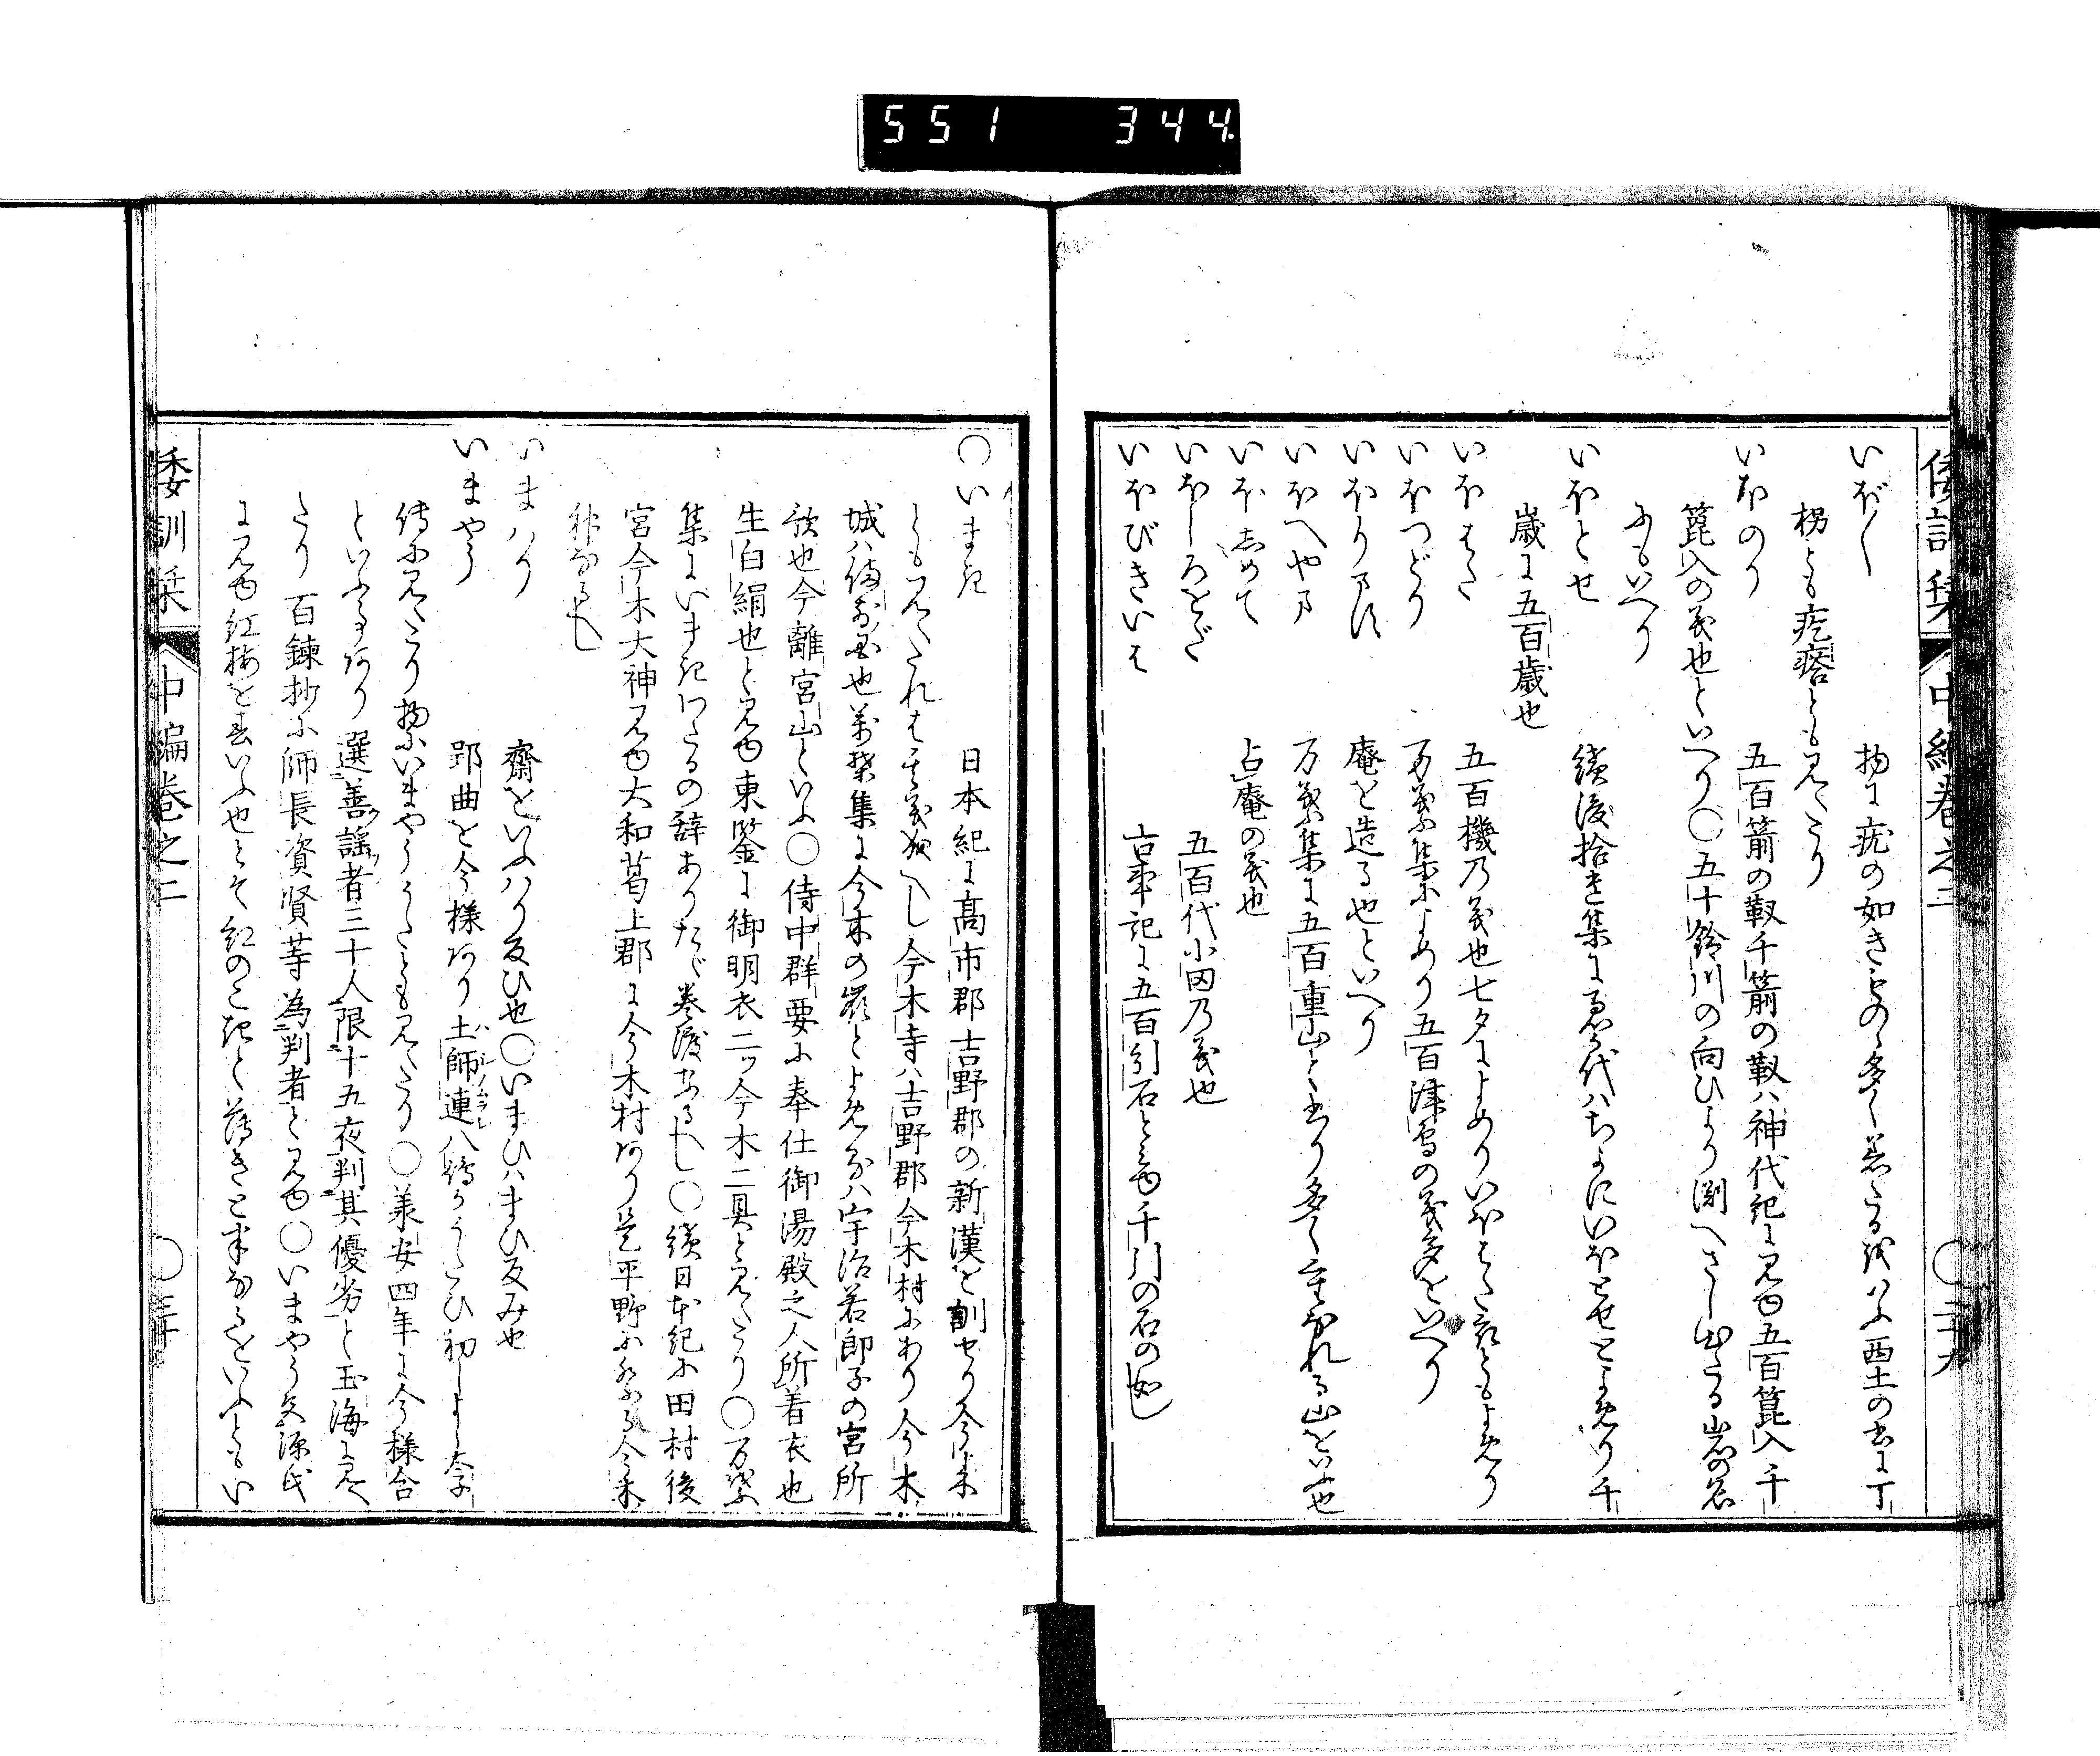 551 344
倭訓栞 中編巻之二 〇二十九
いぼ〳〵 物に疣の如きものゝ多く着たるをいふ西土の書に丁
楞とも疙瘩とも見えたり
いほのり 五百箭の靫千箭の靫ハ神代紀に見ゆ五百箆入千
箆入の義也といへり〇五十鈴川の向ひより淵へさし出たる岩の名
にもいへり
いほとせ 続後拾遺集に君か代ハちよにいほとせとよめり千
歳に五百歳也
いほはた 五百機乃義也七夕によめりいほはた衣ともよめり
いほつどり 万葉集によめり五百津鳥の義多をいへり
いほりす 庵を造る也といへり
いほへやま 万葉集に五百重山と書り多く重なれる山をいふ也
いほしめて 占庵の義也
いほしろをだ 五百代小田乃義也
いほびきいは 古事記に五百引石と見ゆ千引の石の如し
〇いまき 日本紀に高市郡吉野郡の新漢を訓せり今来
とも見えたれは其義成へし今木寺ハ吉野郡今木村にあり今木
城ハ備前国也万葉集に今木の嶺とよめるハ宇治若郎子の宮所
歌也今離宮山といふ〇侍中群要に奉仕御湯殿之人所着衣也
生白絹也と見ゆ東鑑に御明衣二ッ今木二具と見えたり〇万葉
集にいまきわたるの辞ありたゞ巻渡なるへし〇続日本紀に田村後
宮今木大神見ゆ大和葛上郡に今木村あり是平野に祭る今木
神なるへし
いまハり 齋をいふハり反ひ也〇いまひハまひ反み也
いまやう 郢曲を今様あり土師連八嶋かうたひ初しよし太子
伝に見えたり物にいまやううたとも見えたり〇承安四年に今様合
といふ事あり選善謡者三十人限十五夜判其優劣と玉海に見え
たり百錬抄に師長資賢等為判者と見ゆ〇いまやう色源氏
に見ゆ紅梅を云いふ也とそ紅のこきと薄きと半なるをいふともい
倭訓栞 中編巻之二 〇三十